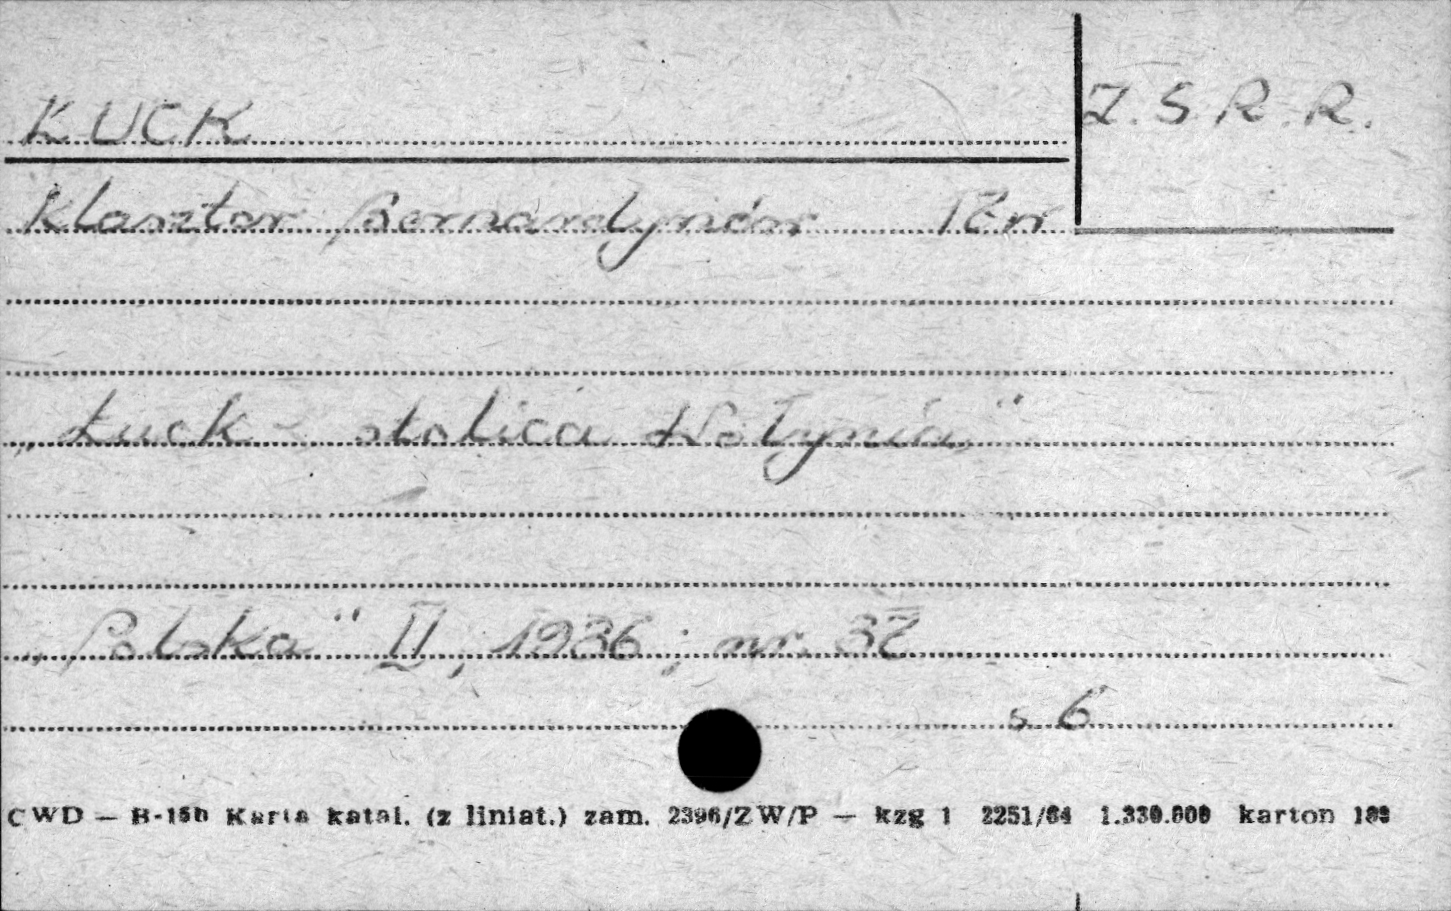 ŁUCK
Z.S.R.R.
Klasztor Bernardynów
„Łuck - stolica Wołynia"
„Polska" II, 1936; nr. 37
s. 6
CWD — B-15b Karta katal. (z liniat.) zam. 2396/ZW/P — kzg 1 2251/64 1.330.000 karton